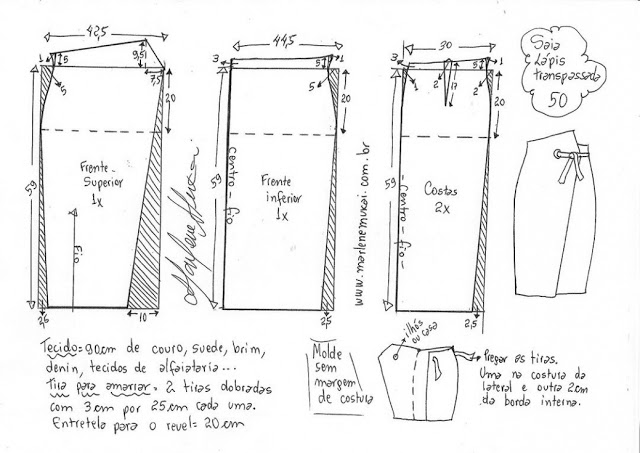 42,5
1
5
9,5
7,5
5
20
59
Frente
Superior
1x
Fio
2,5
10
Marlene Mukai
44,5
3
5
5
20
59
centro - fio
Frente
inferior
1x
2,5
www.marlenemukai.com.br
30
3
1
2
17
5
2
1
20
59
- Centro - fio -
Costas
2x
2,5
Saia
Lápis
transpassada
50
Tecido= 90cm de couro, suede, brim,
denin, tecidos de alfaiataria...
Tira para amarrar= 2 tiras dobradas
com 3cm por 25cm cada uma.
Entretela para o revel= 20cm
Molde
sem
margem
de costura
ilhós
ou casa
Pregar as tiras.
Uma na costura da
lateral e outra 2cm
da borda interna.